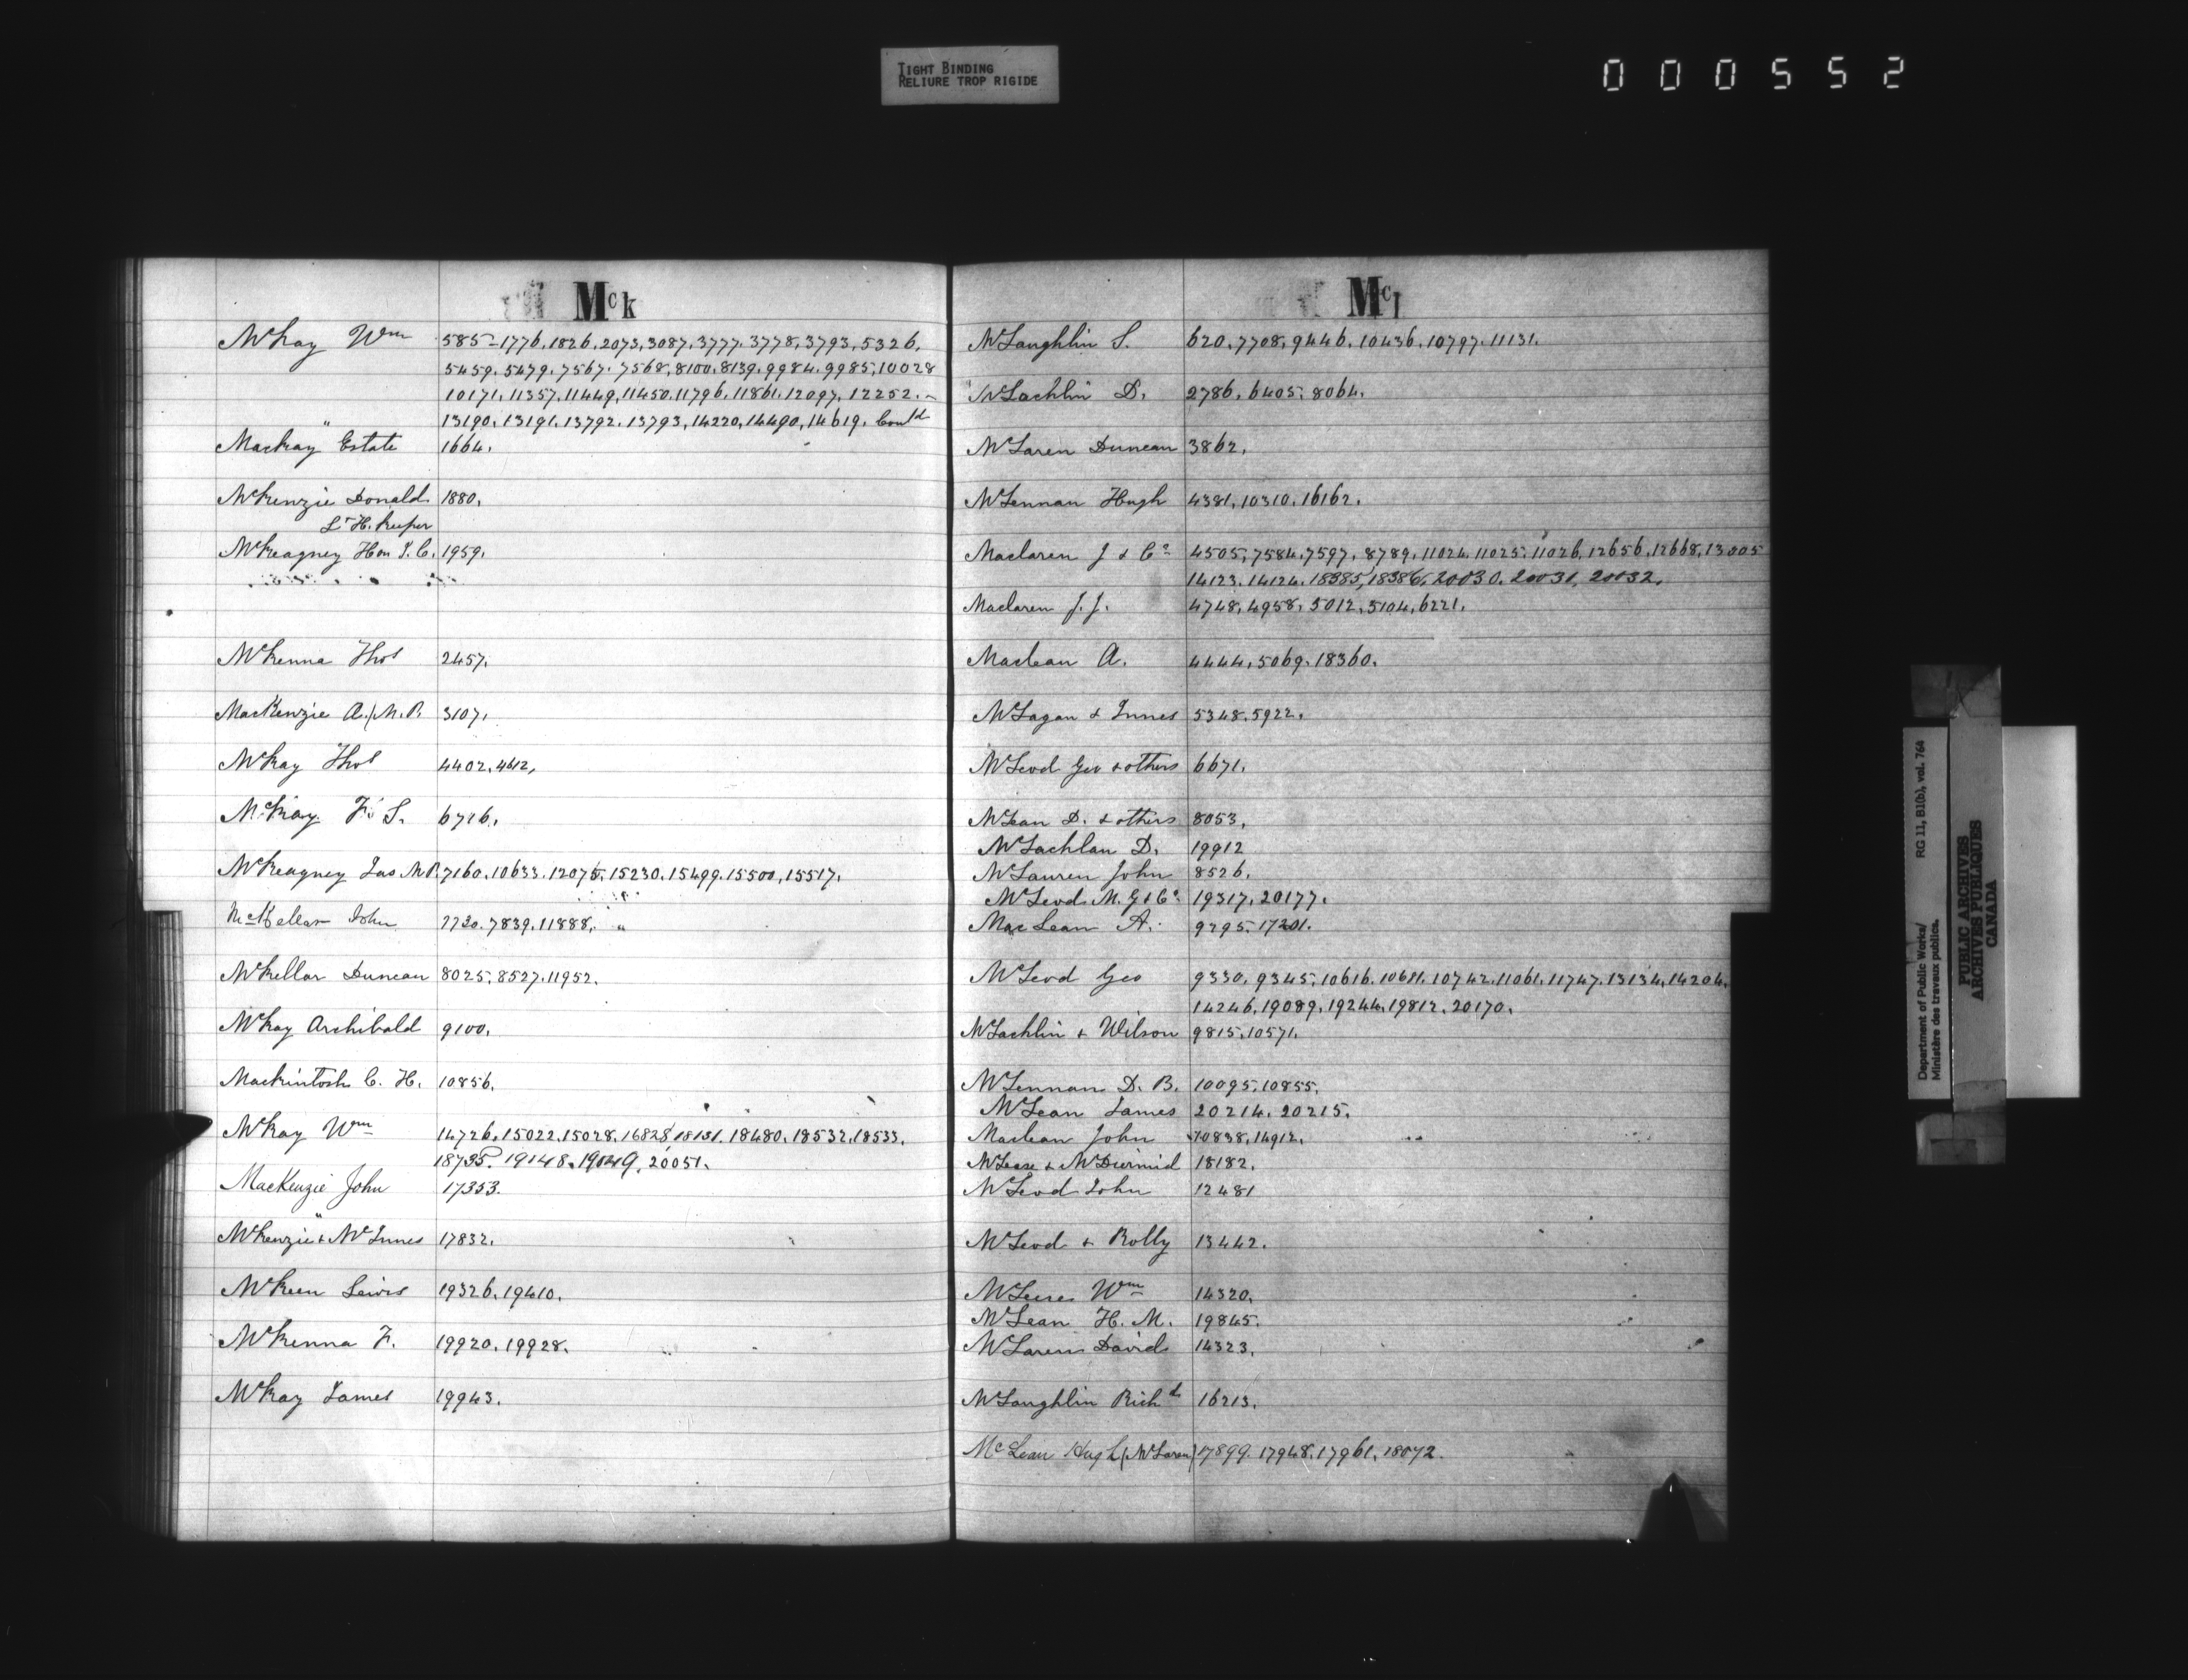 TIGHT BINDING
RELIURE TROP RIGIDE
000552
Mck
McKay Wm 585-1776.1826.2073.3087.3777.3778.3793.5326.
5459.5479.7567.7568.8100.8139.9984.9985.10028
10171.11357.11449.11450.11796.11861.12097.12252.-
13190.13191.13792.13793.14220.14490.14619. Contd
Mackay Estate 1664.
McKenzie Donald 1880.
Lt H. Keeper
McKeagney Hon J.C. 1959.
McKenna Thos 2457.
MacKenzie A. (M.P. 3107.
McKay Thos 4402.4612,
McKay F. S. 6716.
McKeagney Jas M.P. 7160.10633.12075.15230.15499.15500.15517.
McKellar John 7730.7839.11888. "
McKellar Duncan 8025.8527.11952.
McKay Archibald 9100.
Mackintosh C. H. 10856.
McKay Wm 14726.15022.15028.16828.18131.18480.18532.18533.
18735. 19148.19049.20051.
MacKenzie John 17353.
McKenzie & McInnes 17832.
McKeen Lewis 19326.19410.
McKenna F. 19920.19928.
McKay James 19943.
Mcl
McLaughlin S. 620.7708.9446.10436.10797.11131.
McLachlin D. 2786.6405.8064.
McLaren Duncan 3862.
McLennan Hugh 4381.10310.16162.
Maclaren J & Co 4505.7584.7597.8789.11024.11025.11026.12656.12668.13005
14123.14124.18385.18386.20030.20031.20032.
Maclaren J.J. 4748.4958.5012.5104.6221.
Maclean A. 4444.5069.18360.
McLagan & Innes 5348.5922.
McLeod Geo & others 6671.
McLean D. & others 8053.
McLachlan D. 19912
McLauren John 8526.
McLeod M. G & Co 19317.20177.
MacLean A. 9295.17201.
McLeod Geo 9330.9345.10616.10611.10742.11061.11747.13134.14204.
14246.19089.19244.19812.20170.
McLachlin & Wilson 9815.10571.
McLennan D. B. 10095.10855.
McLean James 20214.20215.
Maclean John 10838.14912.
McLeese & McDiermid 18182.
McLeod John 12481
McLeod & Rolly 13442.
McLees Wm 14320.
McLean H. M. 19845.
McLaren David 14323.
McLaughlin Richd 16213.
McLean Hugh (McLaren) 17899.17948.17961.18072.
Department of Public Works/ RG 11, B1(b), vol. 764
Ministère des travaux publics.
PUBLIC ARCHIVES
ARCHIVES PUBLIQUES
CANADA